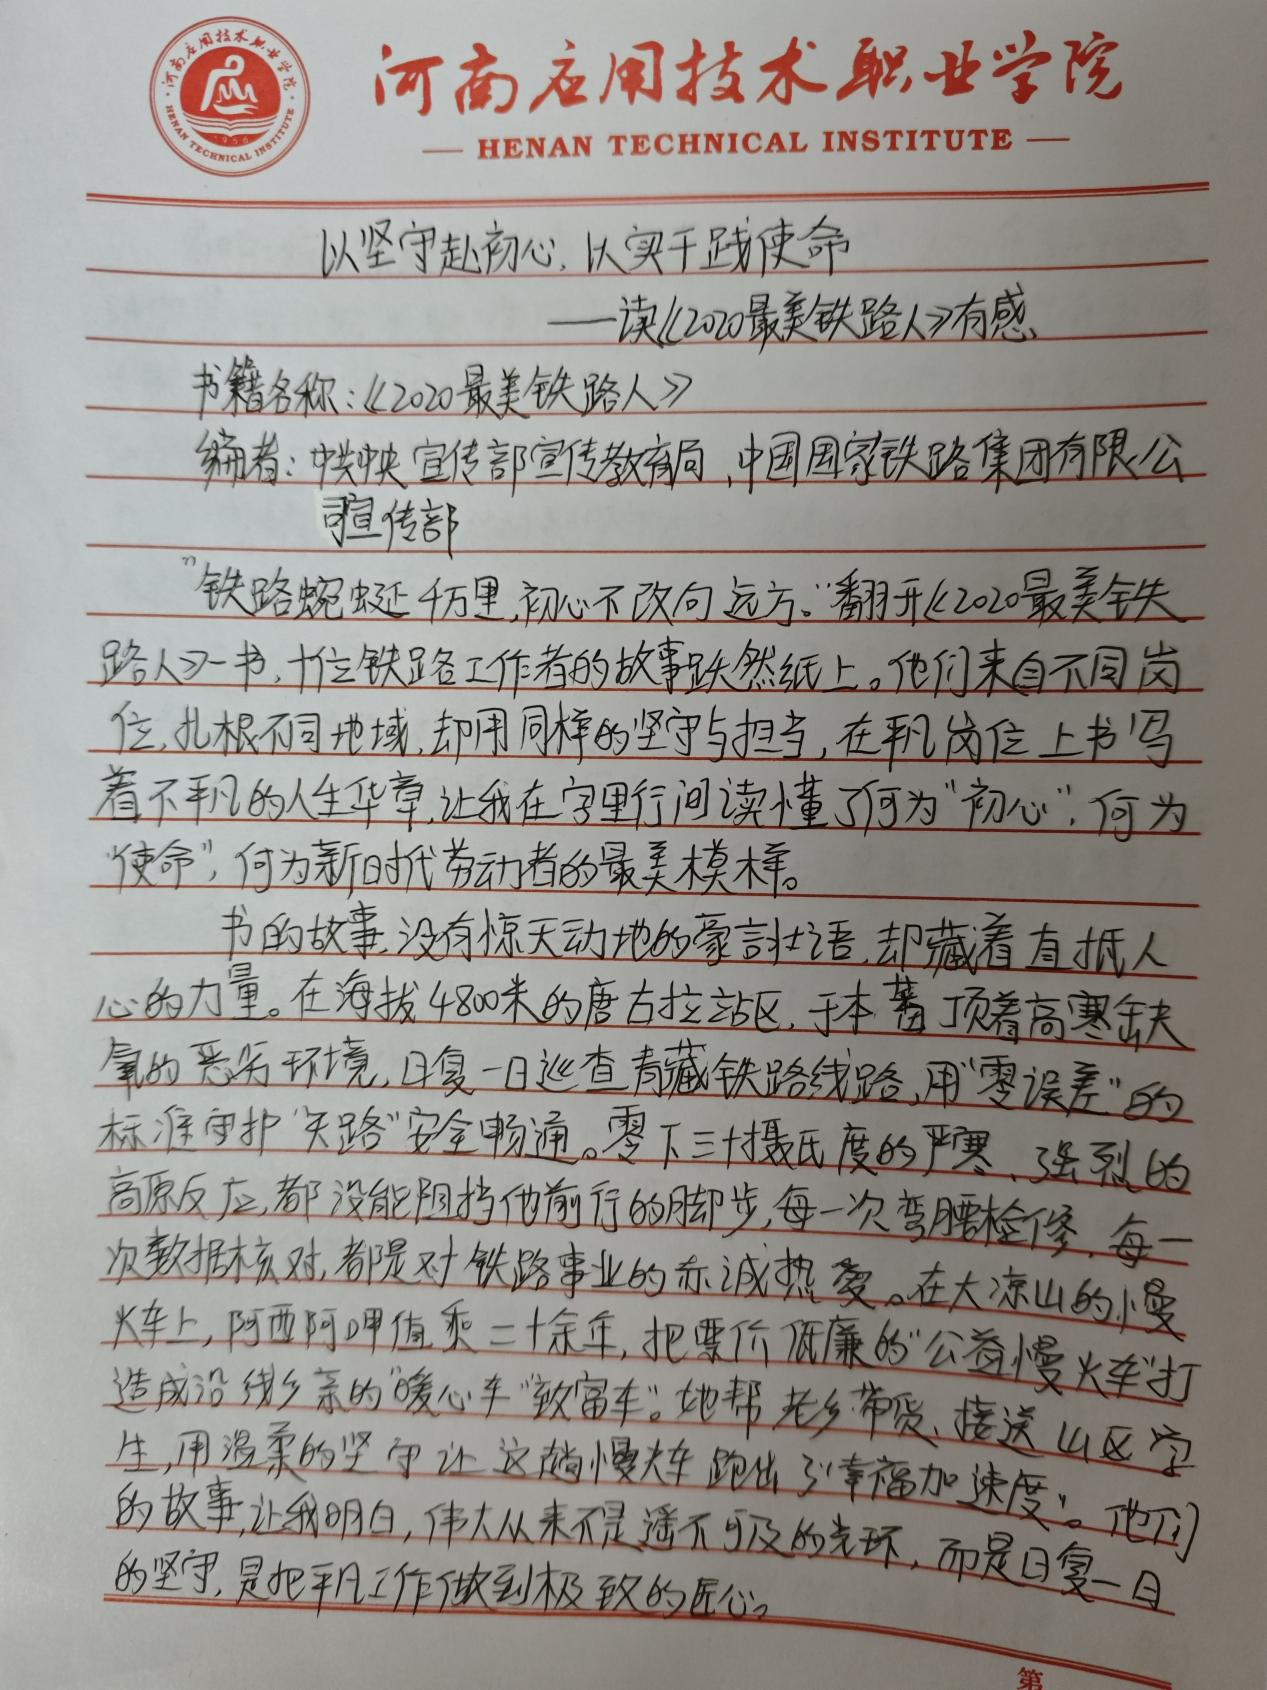 河南应用技术职业学院
HENAN TECHNICAL INSTITUTE
河南应用技术职业学院
HENAN TECHNICAL INSTITUTE
1956
以坚守赴初心,以实干践使命
——读《2020最美铁路人》有感
书籍名称:《2020最美铁路人》
编者:中共中央宣传部宣传教育局,中国国家铁路集团有限公
司宣传部
"铁路蜿蜒千万里,初心不改向远方。"翻开《2020最美铁
路人》一书,十位铁路工作者的故事跃然纸上。他们来自不同岗
位,扎根不同地域,却用同样的坚守与担当,在平凡岗位上书写
着不平凡的人生华章,让我在字里行间读懂了何为"初心",何为
"使命",何为新时代劳动者的最美模样。
书的故事,没有惊天动地的豪言壮语,却藏着直抵人
心的力量。在海拔4800米的唐古拉站区,于本蕃顶着高寒缺
氧的恶劣环境,日复一日巡查青藏铁路线路,用"零误差"的
标准守护"天路"安全畅通。零下三十摄氏度的严寒、强烈的
高原反应,都没能阻挡他前行的脚步,每一次弯腰检修,每一
次数据核对,都是对铁路事业的赤诚热爱。在大凉山的慢
火车上,阿西阿呷值乘二十余年,把票价低廉的"公益慢火车"打
造成沿线乡亲的"暖心车""致富车"。她帮老乡带货、接送山区学
生,用温柔的坚守让这趟慢火车跑出了"幸福加速度"。他们
的故事,让我明白,伟大从来不是遥不可及的光环,而是日复一日
的坚守,是把平凡工作做到极致的匠心。
第